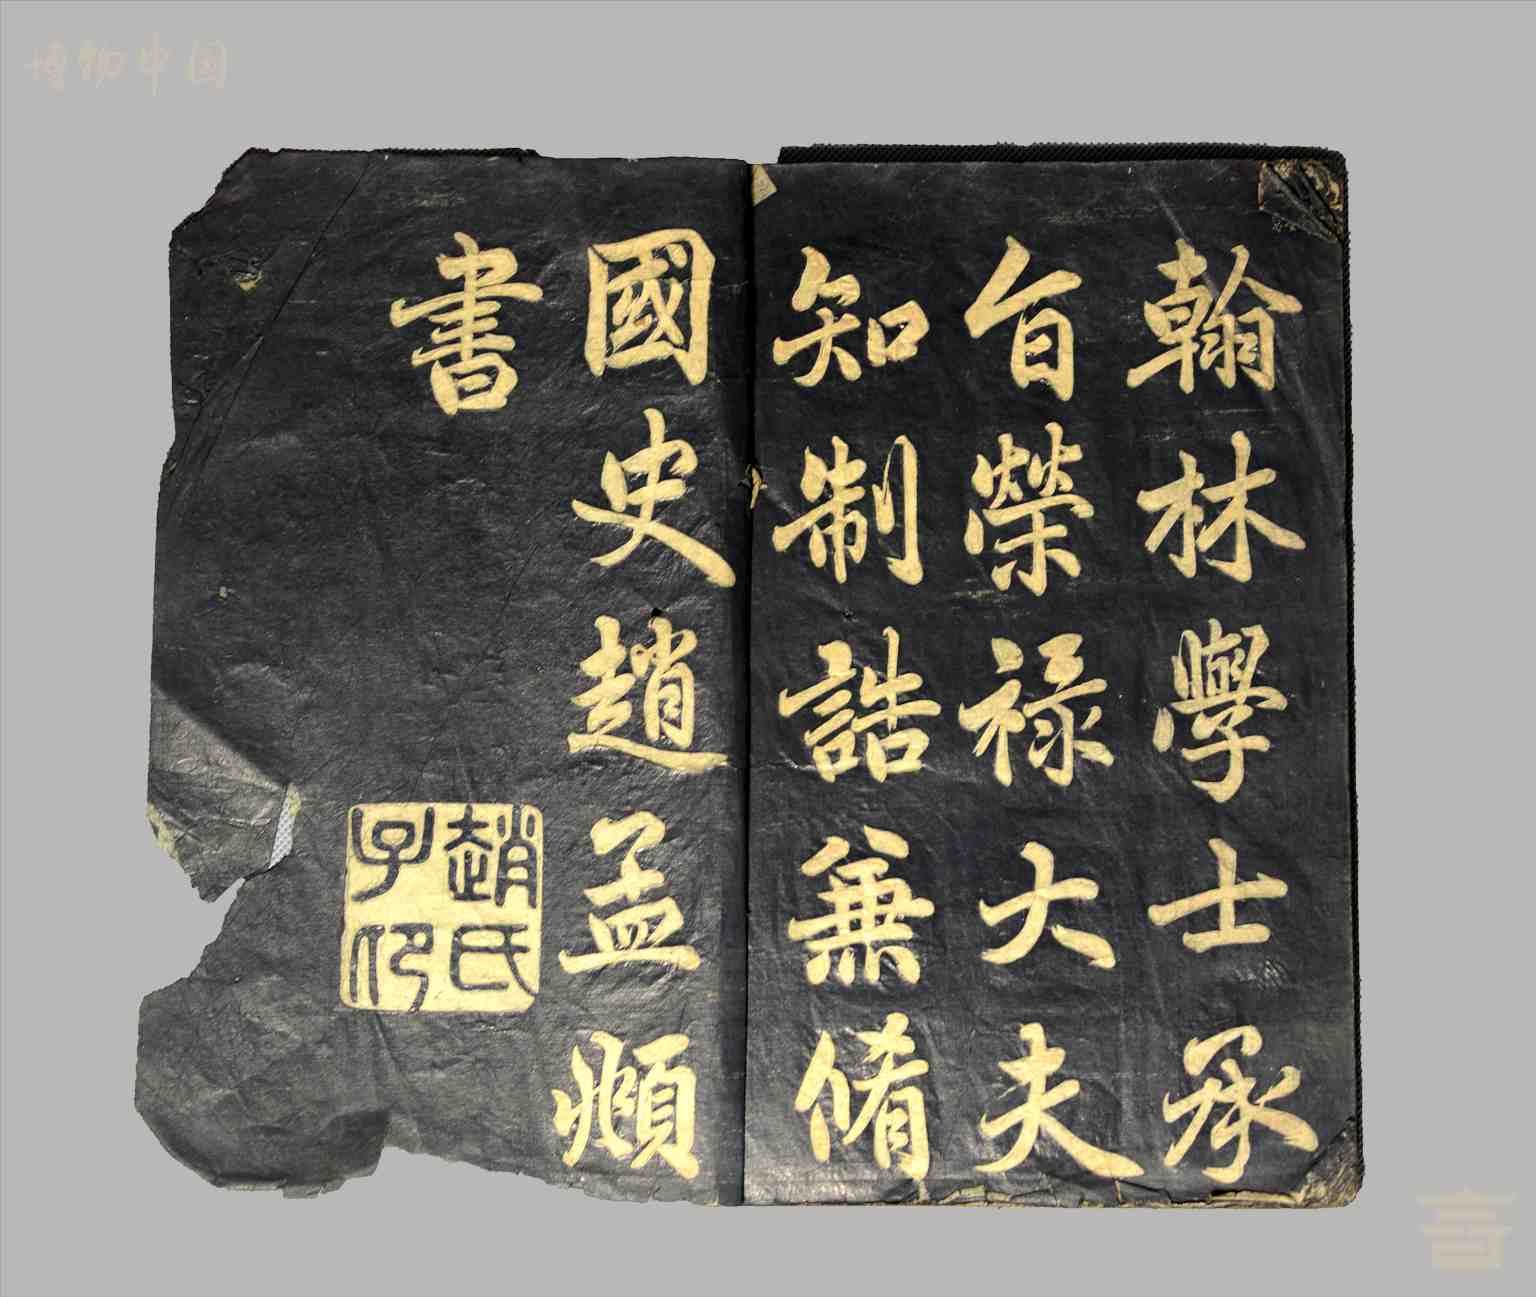 博物中国
翰林學士承
旨榮禄大夫
知制誥兼脩
國史趙孟頫
書
趙氏
子印